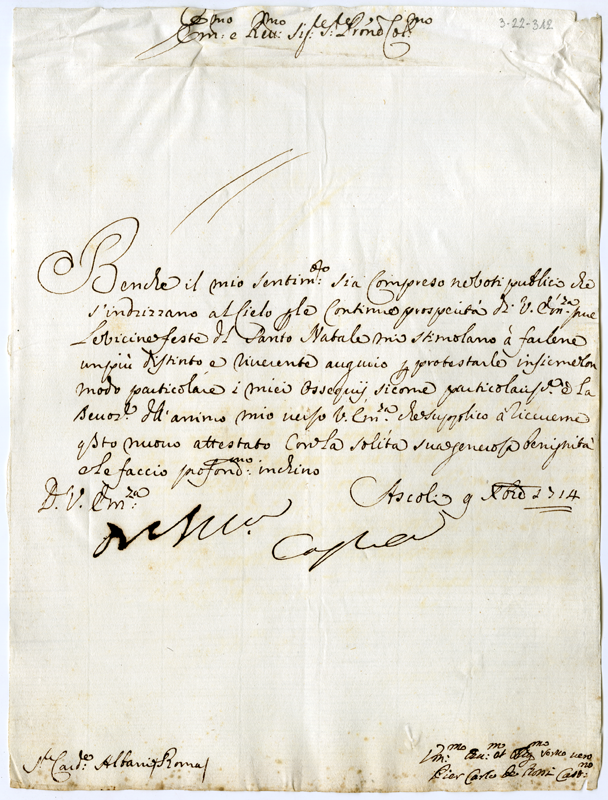 3-22-312
Em:mo e Rev:mo Sig:re Sig:re Pron Col:mo
Benche il mio sentim:to sia Compreso ne voti publici che
s'indrizzano al Cielo p le Continue prosperità di V. Em:za pure
Le vicine feste del Santo Natale mi stimolano à farlene
un più distinto e riverente augurio p protestarle insieme con
modo particolare i miei ossequij sicome particolariss:a è la
Devoz:e dell'animo mio verso V. Em:za che supplico à riceverne
q̃sto nuovo attestato Con la solita sua generosa benignità
e le faccio profond:mo inchino
D. V. Em:za Ascoli 9 Xbre 1714
S:re Card:le Albani Roma
Um:mo Dev:mo et Oblig:mo
Pier Carlo